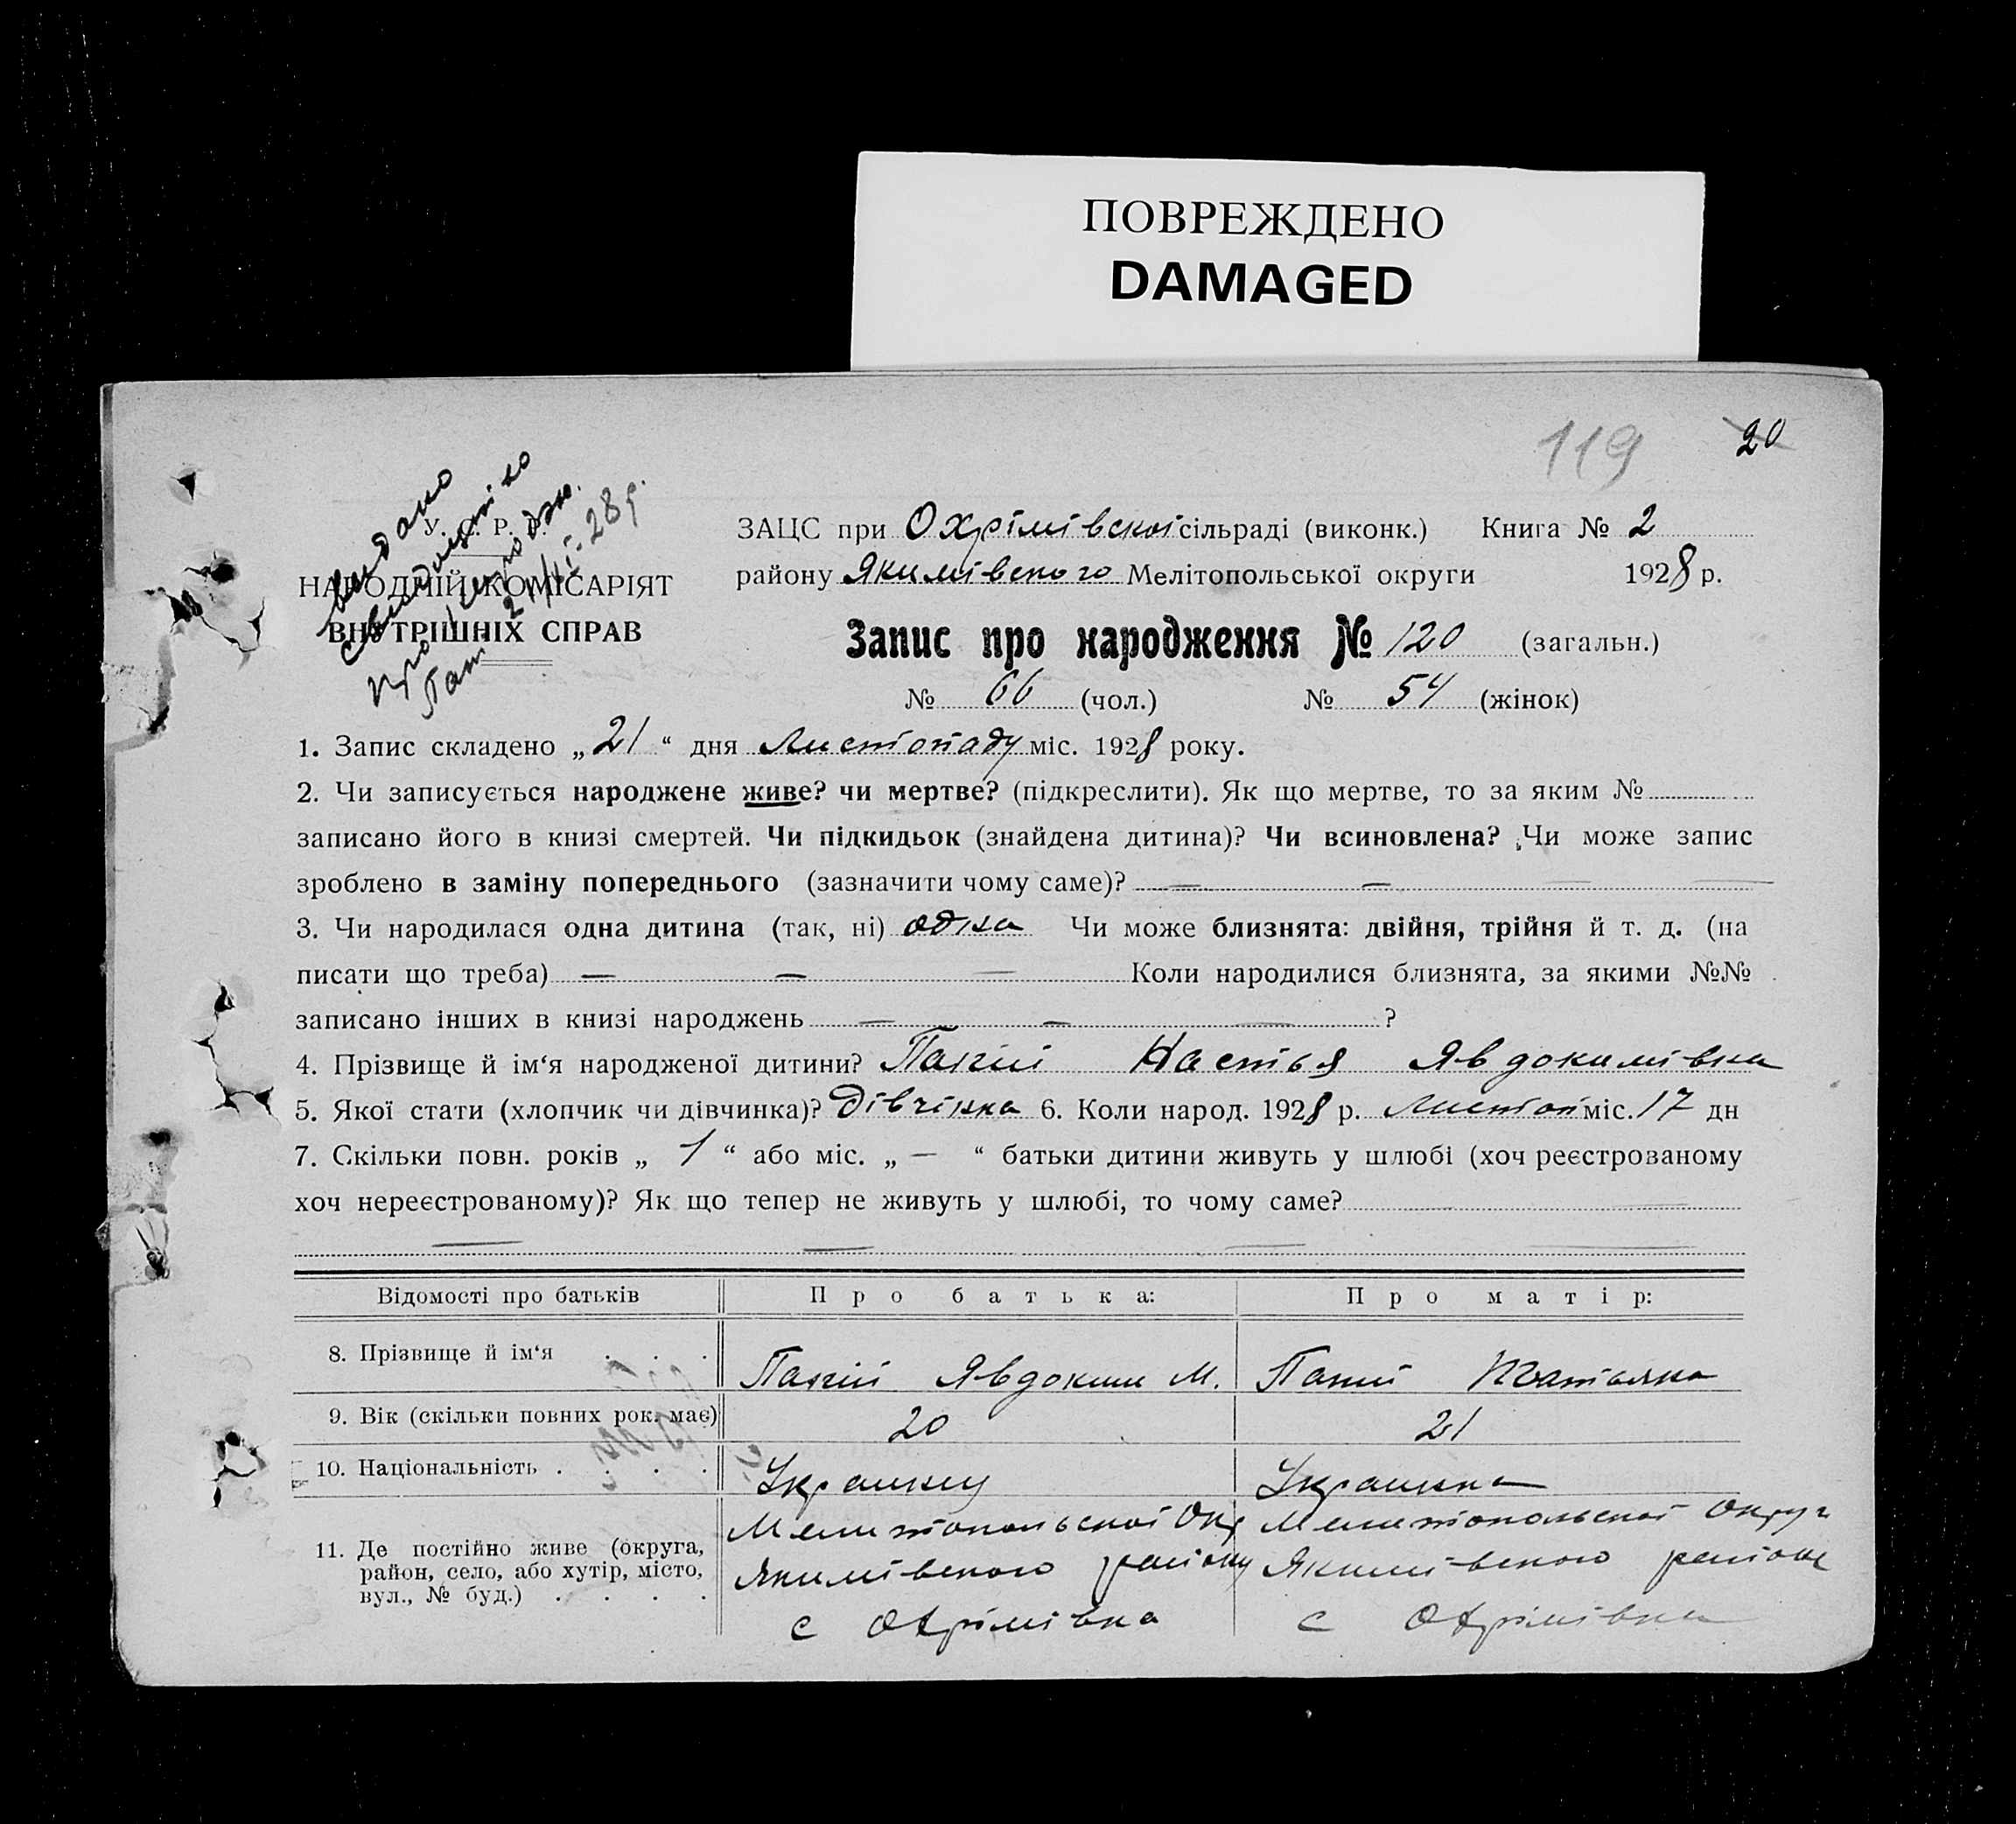 ПОВРЕЖДЕНО
DAMAGED
119 20
видано
свидоцтво
про народж.
21/XI-28 р.
У. С. Р. Р.
НАРОДНІЙ КОМІСАРІЯТ
ВНУТРІШНІХ СПРАВ
ЗАЦС при Охрімівскої сільраді (виконк.) Книга № 2
району Якимівского Мелітопольської округи 1928 р.
Запис про народження № 120 (загальн.)
№ 66 (чол.) № 54 (жінок)
1. Запис складено „21“ дня Листопаду міс. 1928 року.
2. Чи записується народжене живе? чи мертве? (підкреслити). Як що мертве, то за яким №
записано його в книзі смертей. Чи підкидьок (знайдена дитина)? Чи всиновлена? Чи може запис
зроблено в заміну попереднього (зазначити чому саме)? — —
3. Чи народилася одна дитина (так, ні) одна Чи може близнята: двійня, трійня й т. д. (на
писати що треба) — — — Коли народилися близнята, за якими №№
записано інших в книзі народжень — — — ?
4. Прізвище й ім‘я народженої дитини? Настья Явдокимівна
5. Якої стати (хлопчик чи дівчинка)? Дівчінка 6. Коли народ. 1928 р. Листоп міс. 17 дн
7. Скільки повн. років „ 1 “ або міс. „ — “ батьки дитини живуть у шлюбі (хоч реєстрованому
хоч нереєстрованому)? Як що тепер не живуть у шлюбі, то чому саме? — —
— — — —
Відомості про батьків Про батька: Про матір:
8. Прізвище й ім‘я . . . Явдоким М. Татьяна
9. Вік (скільки повних рок. має) 20 21
10. Національність . . . . Украинец Украинка
11. Де постійно живе (округа,
район, село, або хутір, місто,
вул., № буд.) . . . .
Мелитопольскої Окр
Якимівского району
с Охрімівка
Мелитопольскої Округи
Якимівского району
с Охрімівка